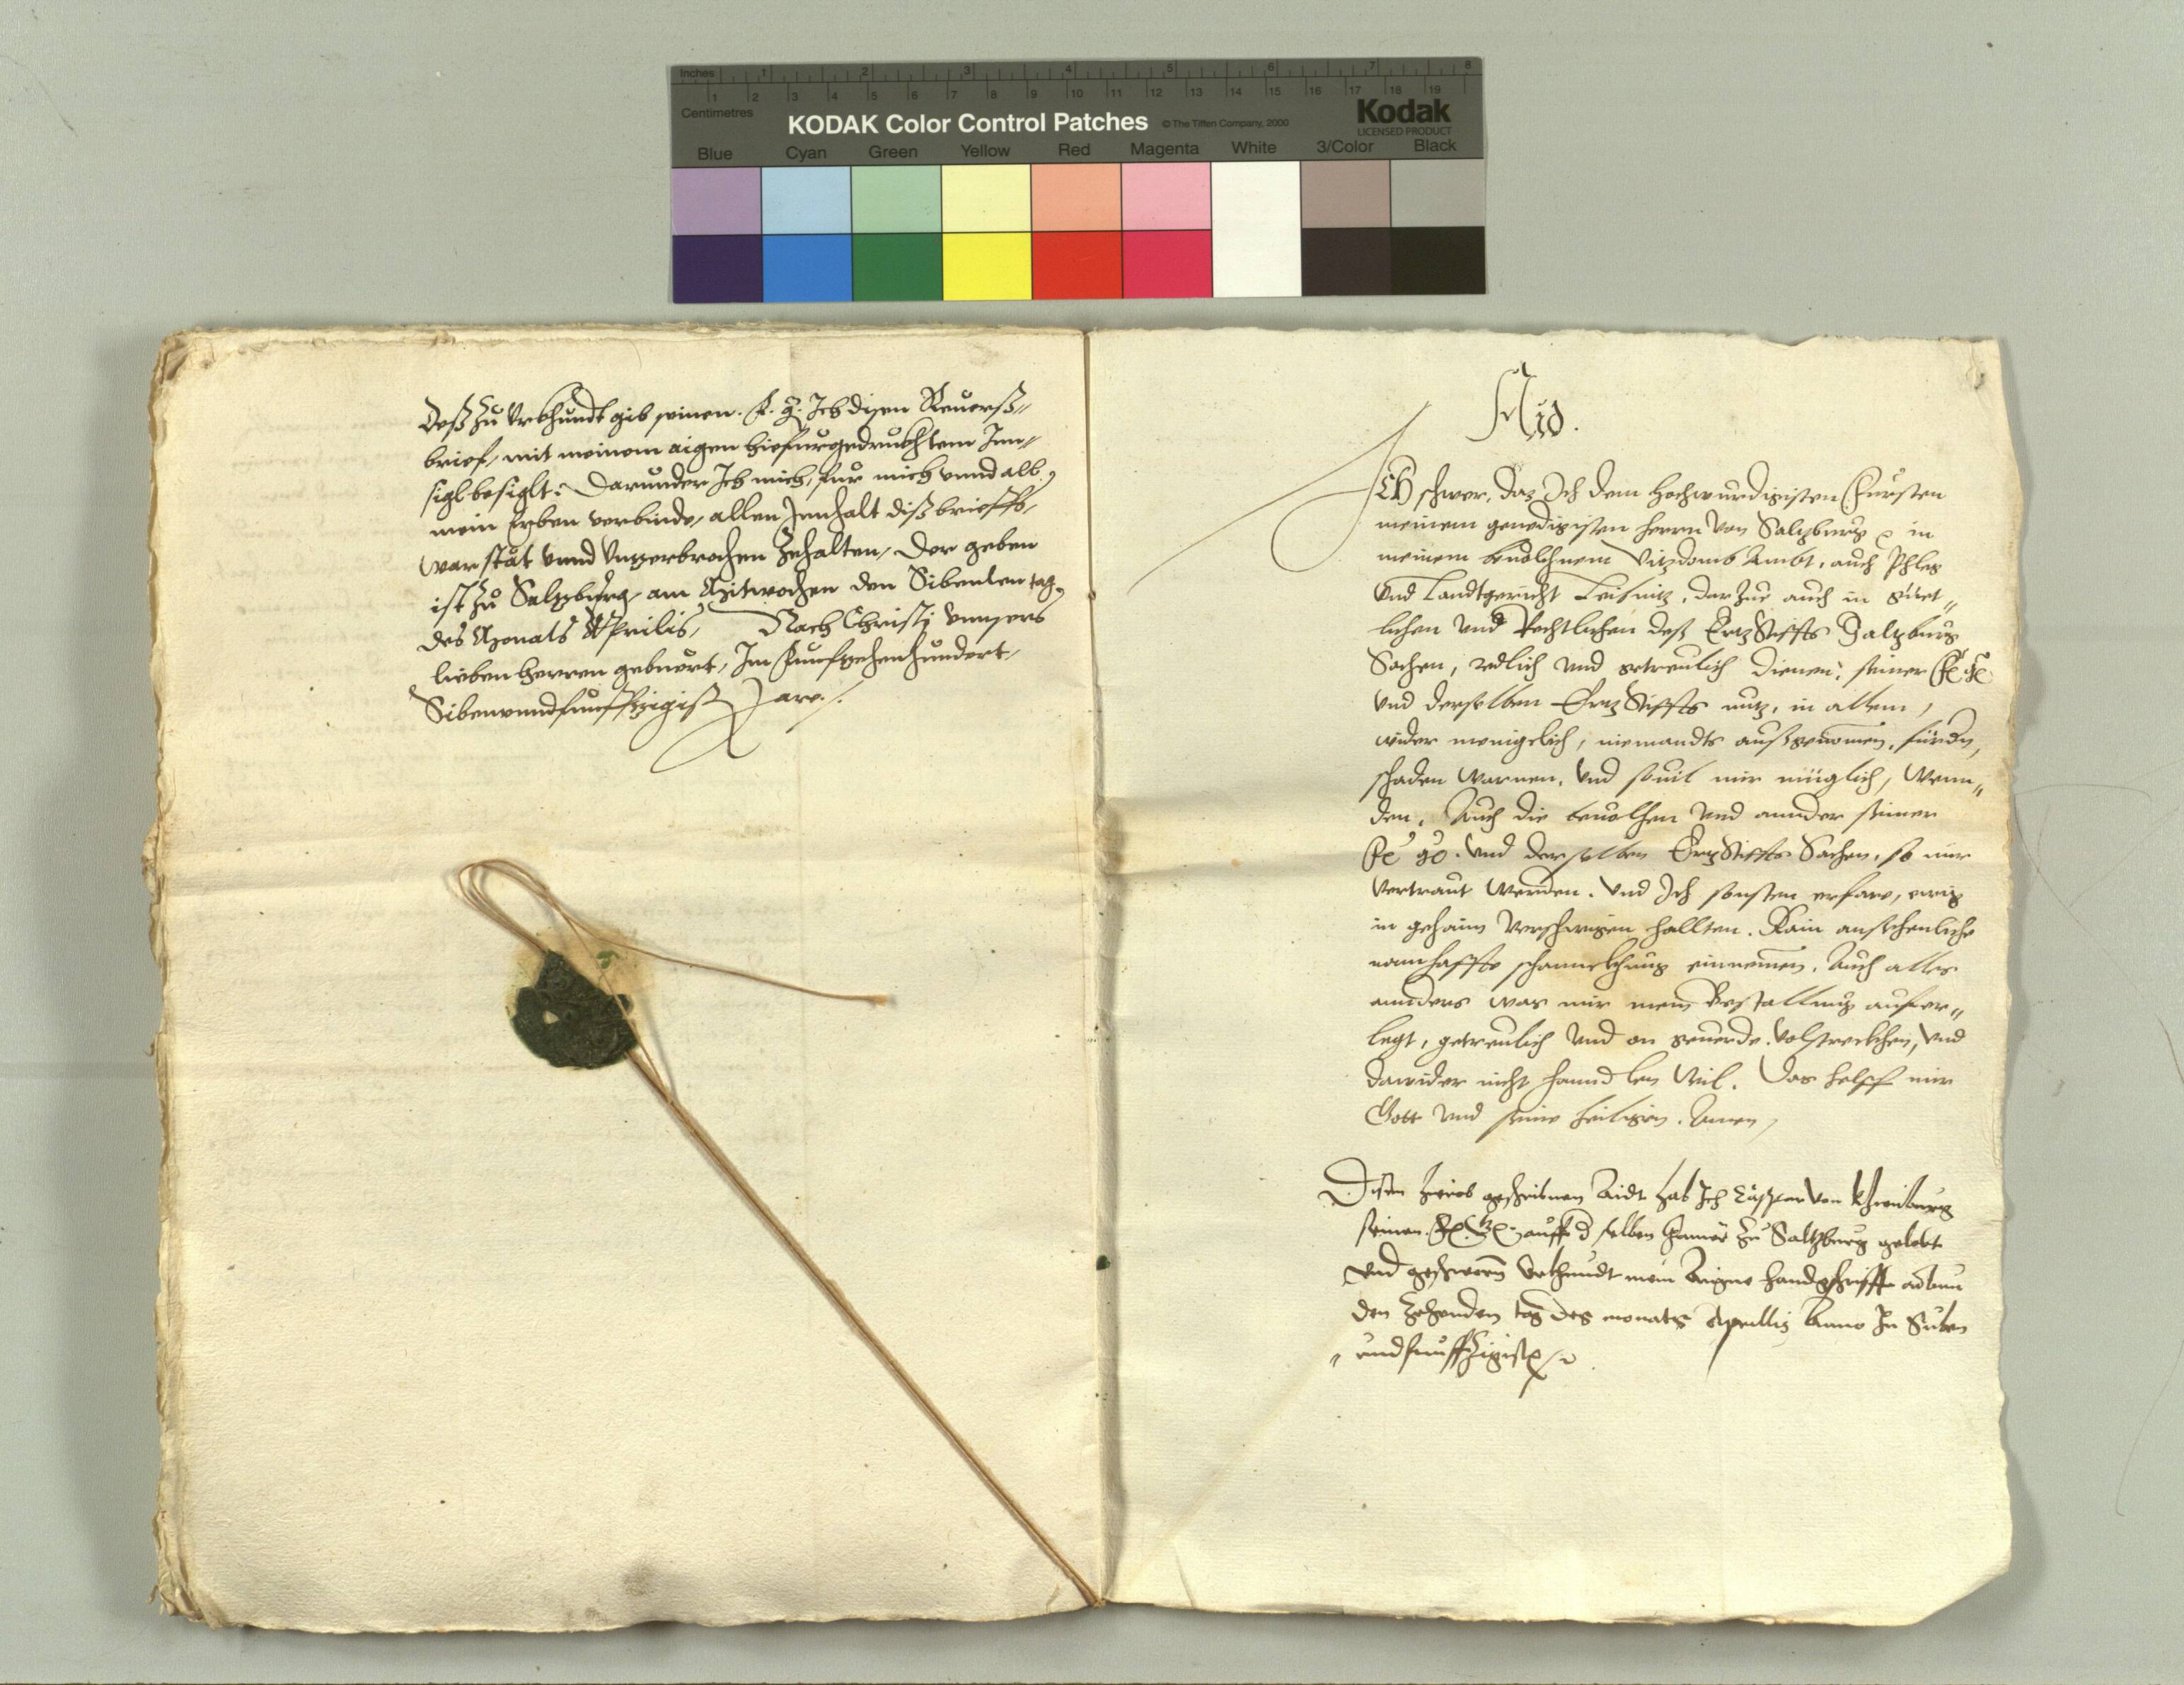 Inches 1 2 3 4 5 6 7 8
1 2 3 4 5 6 7 8 9 10 11 12 13 14 15 16 17 18 19
Centimetres
KODAK Color Control Patches © The Tiffen Company, 2000 Kodak
LICENSED PRODUCT
Blue Cyan Green Yellow Red Magenta White 3/Color Black
Deß zu Vrkhundt gib seinen. F. G. Ich disen Reuerß„
brief, mit meinem aigen hiefurgedrukhtem Inn„
sigl besiglt: Darunder Ich mich, fur mich vnnd all
mein Erben verbinde, allen Innhalt diß brieffs,
war stät vnnd Vnzerbrochen zehalten, Der geben
ist zu Salzburg, am Mitwochen den Sibenten tag,
des Monats Apprilis, Nach Christi vnnsers
lieben herren geburt, Im Funfzehenhundert,
Sibenvnndfunffzigist Jare.
Aid.
ICH schwer, daz Ich dem Hochwurdigisten Fürsten
meinem genedigisten herrn von Salzburg in
meinem beuolchnem Vizdomb Ambt, auch Phleg
Vnd Landtgericht Leibnitz, darzue auch in güet„
lichen Vnd Rechtlichen deß ErtzStiffts Salzburg
Sachen, redlich Vnd getreulich dienen, seiner F. G.
Vnd derselben ErtzStiffts nutz, in allem,
wider menigelich, niemandts außgenomen, fürdn,
schaden warnen, Vnd souil mir müglich, wenn„
den. Auch die beuolhen Vnd annder seiner
F. G. Vnd derselben ErtzStiffts Sachen, so mir
Vertraut werden. Vnd Ich sonsten erfare, ewig
in gehaim verschwigen hallten. Kain ansehenliche
namhaffte schannckhung einnemen. Auch alles
annders was mir mein Bestallung aufer„
legt, getreulich Vnd on geuerde Volstreckhen, Vnd
dawider nicht hanndlen Wil. Das helff mir
Gott Vnd seine heiligen. Amen,
Disen hieob geschribnen Aidt hab Ich Caspar von khienburg
seinen. F. G. auff d selben Camer zu Saltzburg gelobt
Vnd geschworn Vrkhundt mein Aigne handgschrifft actum
den zehenden tag des monats Aprillis Anno Im Siben
„ vndfunffzigist